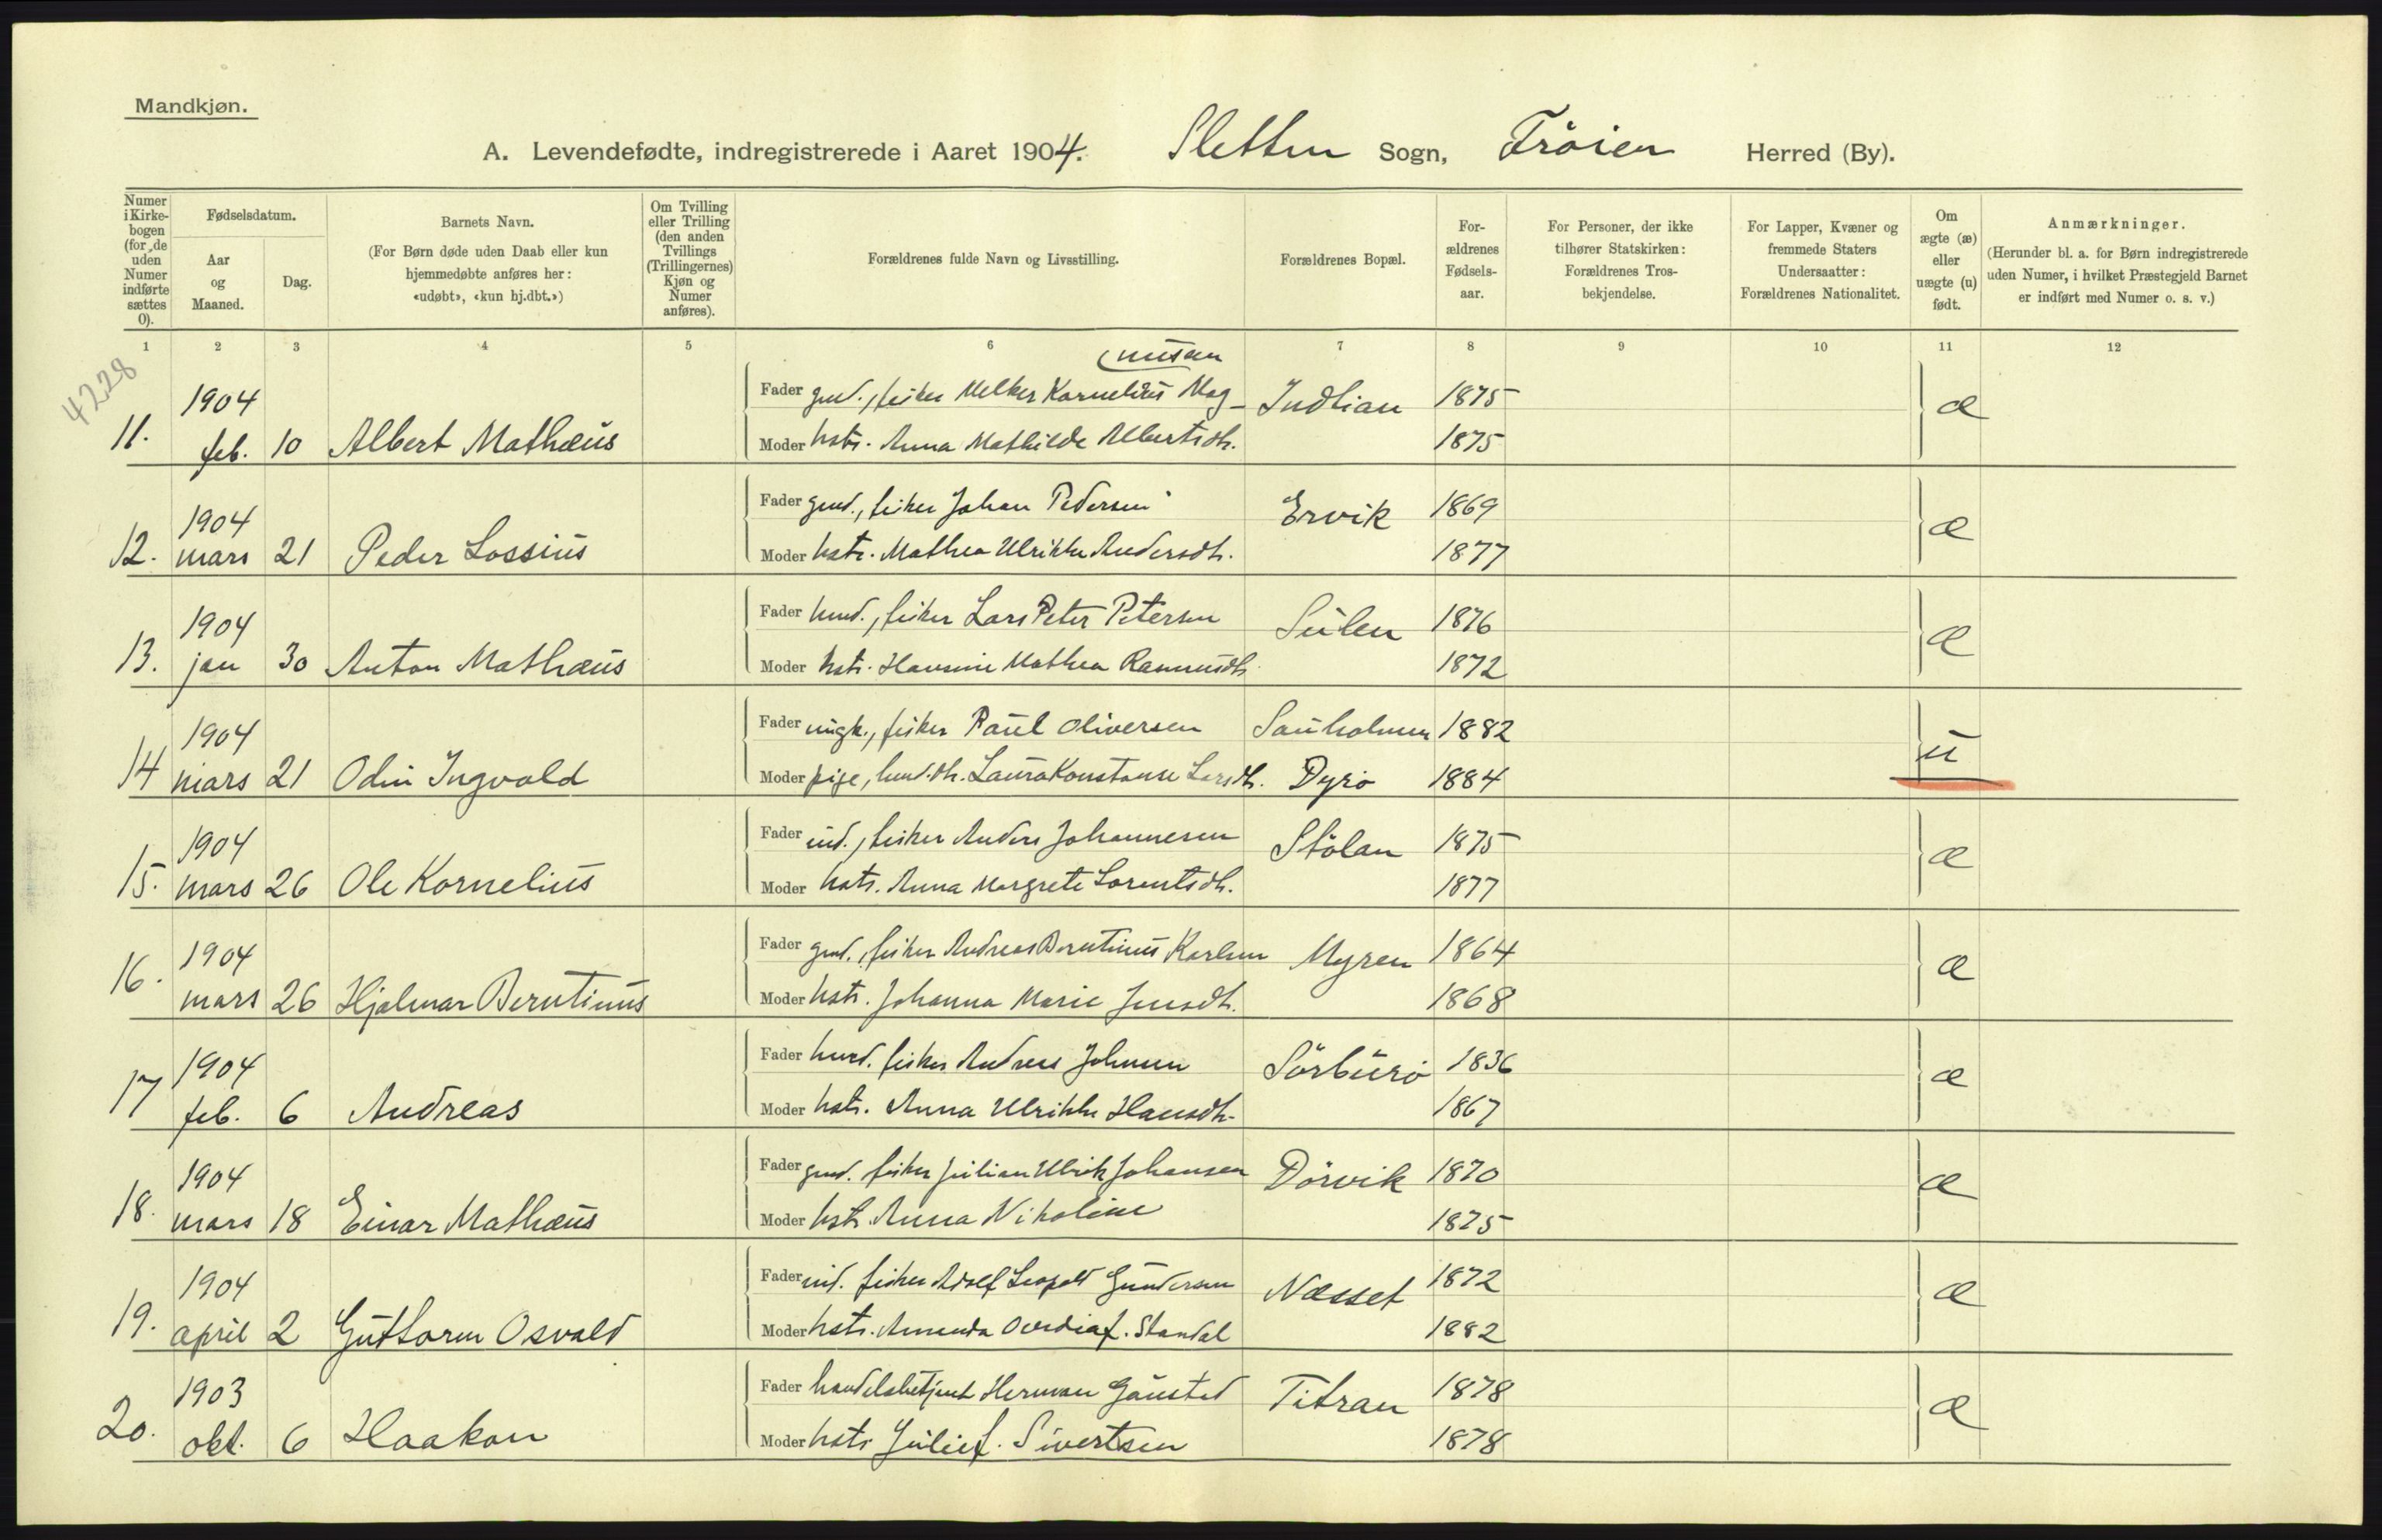 Mandkjøn.
A. Levendefødte, indregistrerede i Aaret 1904. Sletten Sogn, Frøien Herred (By).
Numer i Kirkebogen (for de uden Numer indførte sættes 0).
Fødselsdatum.
Aar og Maaned.
Dag.
Barnets Navn.
(For Børn døde uden Daab eller kun hjemmedøbte anføres her: «udøbt», «kun hj.dbt.»)
Om Tvilling eller Trilling (den anden Tvillings (Trillingernes) Kjøn og Numer anføres).
Forældrenes fulde Navn og Livsstilling.
Forældrenes Bopæl.
Forældrenes Fødselsaar.
For Personer, der ikke tilhører Statskirken: Forældrenes Trosbekjendelse.
For Lapper, Kvæner og fremmede Staters Undersaatter: Forældrenes Nationalitet.
Om ægte (æ) eller uægte (u) født.
Anmærkninger.
(Herunder bl. a. for Børn indregistrerede uden Numer, i hvilket Præstegjeld Barnet er indført med Numer o. s. v.)
1 2 3 4 5 6 7 8 9 10 11 12
4228
nusen
1904 Fader gmd., fisker Melker Kornelius Mag- Indlian 1875 æ
11. feb. 10 Albert Mathæus Moder hstr. Anna Mathilde Albertsdtr. 1875
1904 Fader gmd., fisker Johan Pedersen Ervik 1869 æ
12. mars 21 Peder Lossius Moder hstr. Mathea Ulrikke Andersdtr. 1877
1904 Fader hmd., fisker Lars Peter Petersen Sulen 1876 æ
13. jan 30 Anton Mathæus Moder hstr. Hansine Mathea Rasmusdtr. 1872
1904 Fader ungk., fisker Paul Oliversen Sauholmen 1882 u
14 mars 21 Odin Ingvald Moder pige, hmd.dtr. Laura Konstanse Larsdtr. Dyrø 1884
1904 Fader ind., fisker Anders Johannesen Stölan 1875 æ
15. mars 26 Ole Kornelius Moder hstr. Anna Margrete Lorentsdtr. 1877
1904 Fader gmd., fisker Andreas Berntinus Karlsen Myren 1864 æ
16. mars 26 Hjalmar Berntinus Moder hstr. Johanna Marie Jensdtr. 1868
1904 Fader hmd. fisker Andreas Johnsen Sörburø 1836 æ
17 feb. 6 Andreas Moder hstr. Anna Ulrikke Hansdtr. 1867
1904 Fader gmd. fisker Julian Ulrik Johansen Dörvik 1870 æ
18. mars 18 Einar Mathæus Moder hstr. Anna Nikoline 1875
1904 Fader ind. fisker Adolf Leopold Gundersen Næsset 1872 æ
19. april 2 Guttorm Osvald Moder hstr. Amanda Ovedia f. Standal 1882
1903 Fader handelsbetjent Herman Gausted Titran 1878 æ
20. okt. 6 Haakon Moder hstr. Julie f. Sivertsen 1878